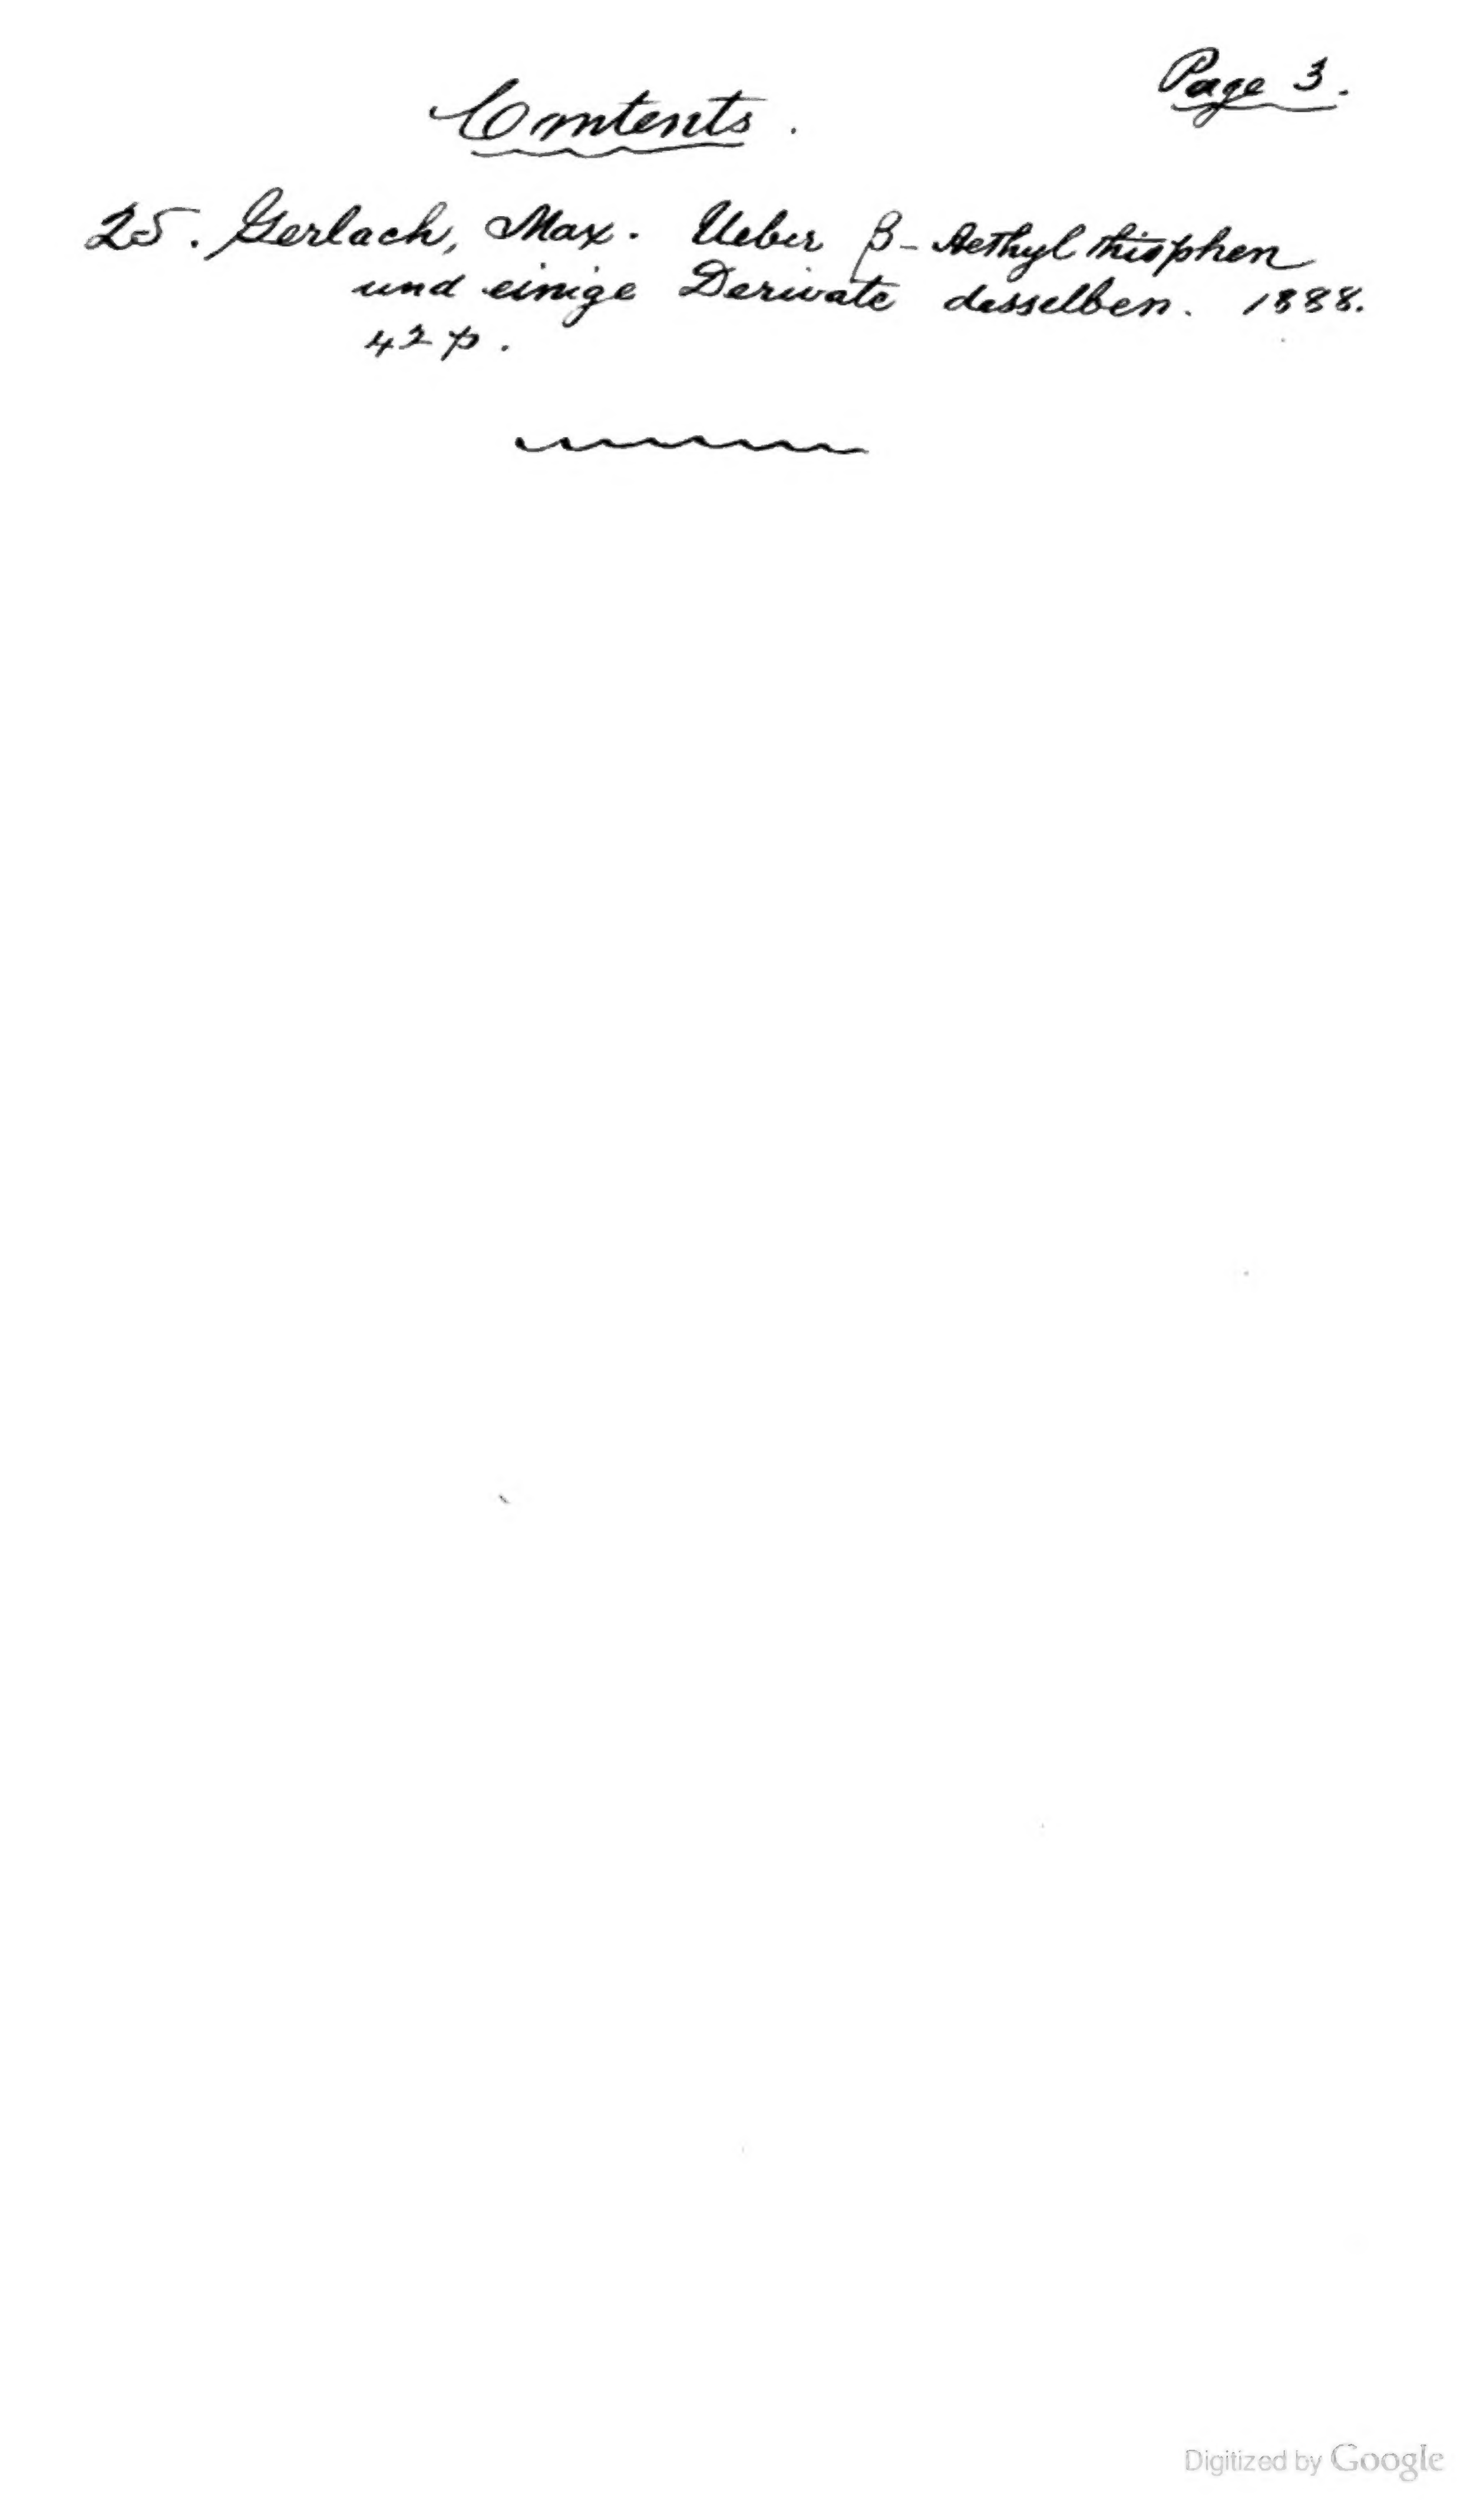 Page 3.
Contents.
25. Gerlach, Max. Ueber β-Aethylthiophen
und einige Derivate desselben. 1888.
42 p.
Digitized by Google